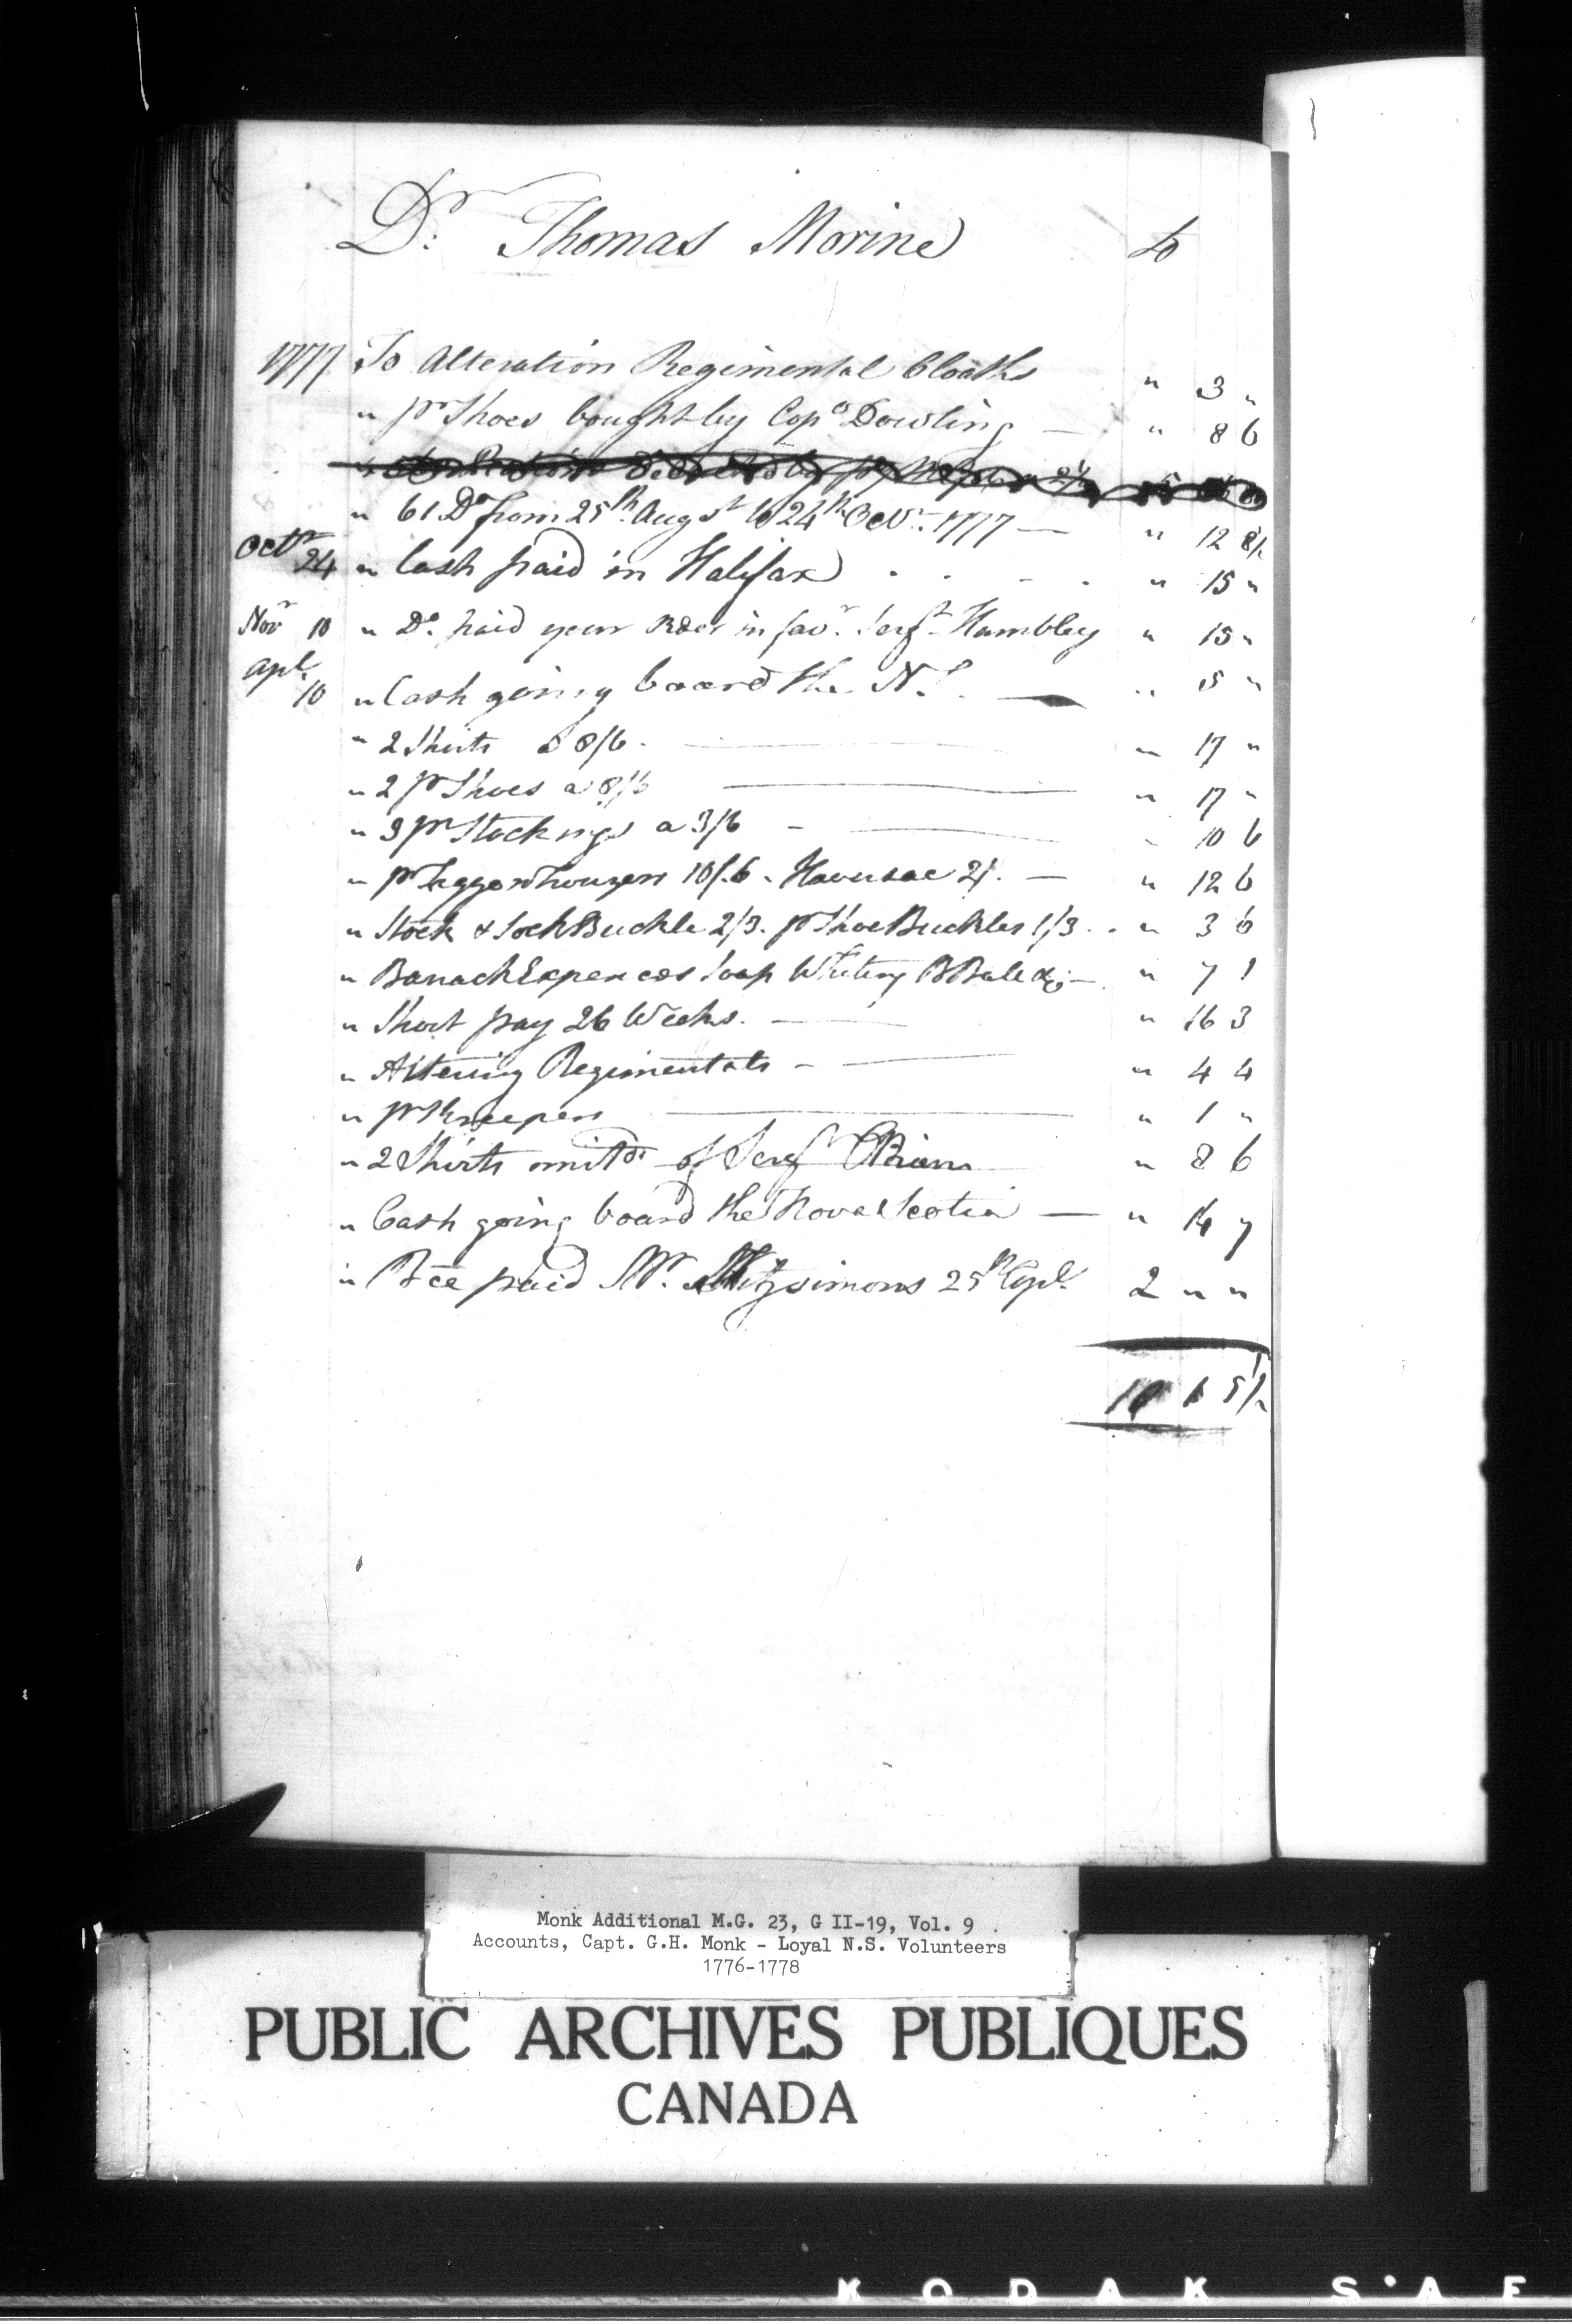 Dr. Thomas Morine to
1777 To Alteration Regimental Cloaths " 3 "
" pr Shoes bought by Copo Dowling — " 8 6
" 61 Do from 25th Augst to 24th Octr. 1777 — " 12 8½
Octr 24 " Cash paid in Halifax . . - . " 15 "
Novr 10 " Do. paid your Order in favr. Sergt Humbley " 15 "
Apl. 10 " Cash going board the N.S. — " 5 "
" 2 Shirts a 8/6 — " 17 "
" 2 pr Shoes a 8/6 — " 17 "
" 3 pr Stockings a 3/6 - — " 10 6
" pr Leggen Trouzers 10/.6 - Haversac 2/. — " 12 6
" Stock & Sock Buckle 2/3. pr Shoe Buckles 1/3 . . " 3 6
" Barrack Expences Soap Whiting B Ball &c; — " 7 1
" Short pay 26 Weeks. — " 16 3
" Altering Regimentals - — " 4 4
" pr Kneepers — " 1 "
" 2 Shirts omitd of Sergt OBrian — " 8 6
" Cash going board the Nova Scotia — " 14 7
" Bce paid Mr. Fitzsimons 25th Apl. 2 " "
10 1 5½
Monk Additional M.G. 23, G II-19, Vol. 9
Accounts, Capt. G.H. Monk - Loyal N.S. Volunteers
1776-1778
PUBLIC ARCHIVES PUBLIQUES
CANADA
KODAK S·AF